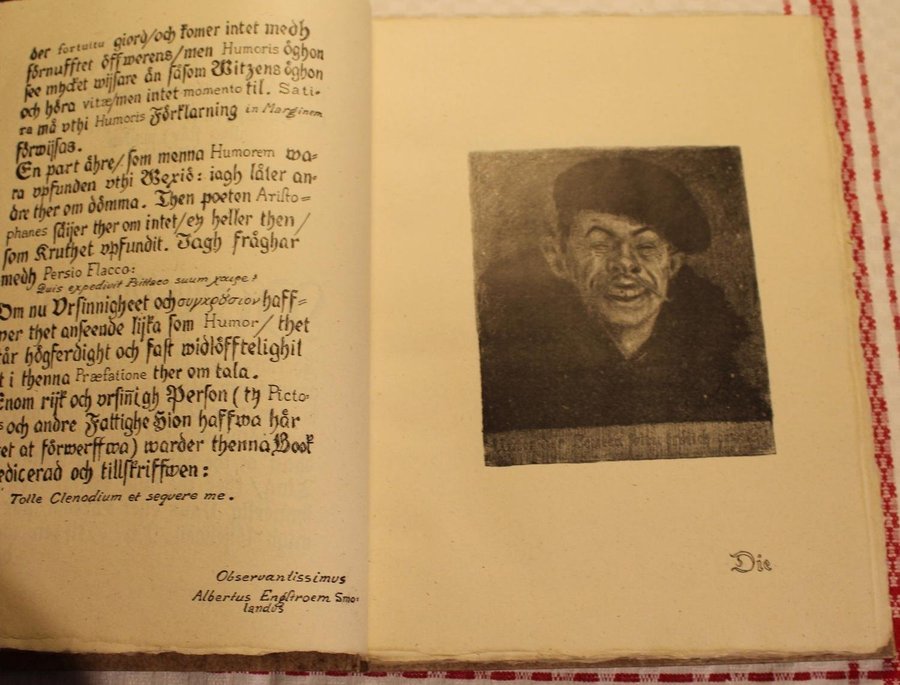 der fortuitu giord/och komer intet medh
förnufftet öffwerens/men Humoris öghon
see mycket wijsare än såsom Witzens öghon
och höra vitæ/men intet momento til. Sati-
ra må vthi Humoris Förklarning in Marginem
förwijsas.
En part ähre/som menna Humorem wa-
ra vpfunden vthi Wexiö: iagh låter an-
dre ther om dömma. Then poeten Aristo-
phanes säijer ther om intet/ey heller then/
som Kruthet vpfundit. Jagh fråghar
medh Persio Flacco:
Quis expedivit Psittaco suum χαιρε?
Om nu Vrsinnigheet och συγχρόσιον haff-
wer thet anseende lijka som Humor/thet
får högferdight och fast widlöfftelighit
t i thenna Præfatione ther om tala.
Enom rijk och vrsiñigh Person (ty Picto-
s och andre Fattighe Hion haffwa här
et at förwerffwa) warder thenna Book
edicerad och tillskriffwen:
Tolle Clenodium et sequere me.
Observantissimus
Albertus Engstroem Smo-
landus
Die